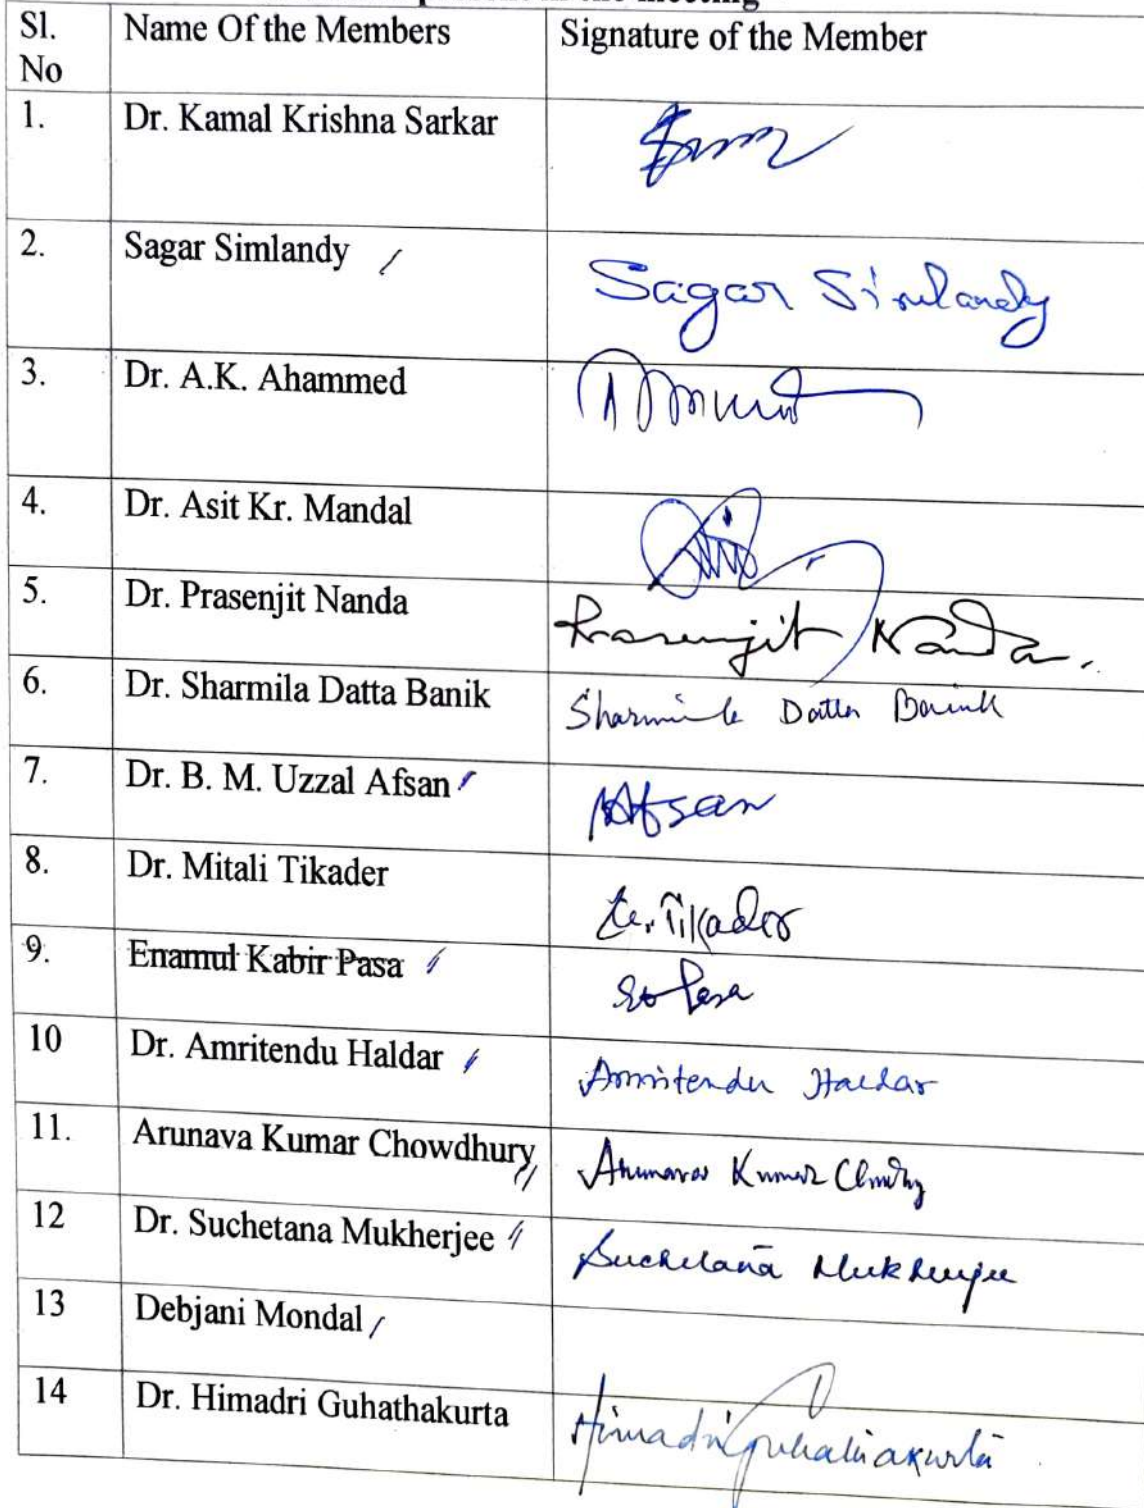 in the meeting
Sl. No Name Of the Members Signature of the Member
1. Dr. Kamal Krishna Sarkar
2. Sagar Simlandy Sagar Simlandy
3. Dr. A.K. Ahammed
4. Dr. Asit Kr. Mandal
5. Dr. Prasenjit Nanda Prasenjit Nanda.
6. Dr. Sharmila Datta Banik Sharmila Datta Banik
7. Dr. B. M. Uzzal Afsan Afsan
8. Dr. Mitali Tikader Tikader
9. Enamul Kabir Pasa Pasa
10 Dr. Amritendu Haldar Amritendu Haldar
11. Arunava Kumar Chowdhury Arunava Kumar Chowdhury
12 Dr. Suchetana Mukherjee Suchetana Mukherjee
13 Debjani Mondal
14 Dr. Himadri Guhathakurta Himadri Guhathakurta